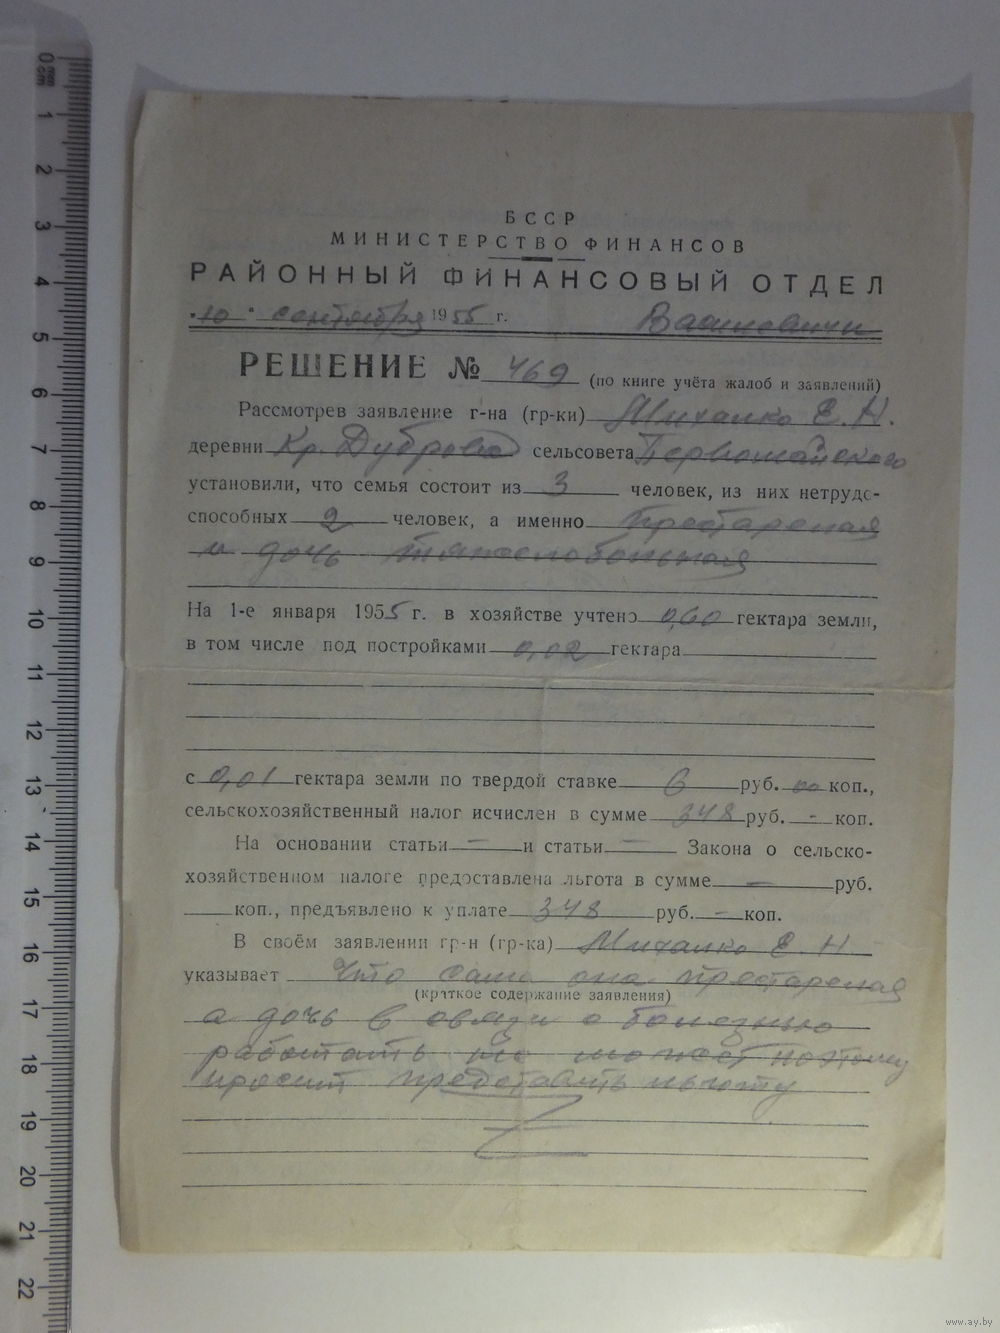 БССР
МИНИСТЕРСТВО ФИНАНСОВ
РАЙОННЫЙ ФИНАНСОВЫЙ ОТДЕЛ
"10" сентября 1955 г.
РЕШЕНИЕ № 469 (по книге учёта жалоб и заявлений)
Рассмотрев заявление г-на (гр-ки) Михалко Е. Н.
деревни Кр. Дуброва сельсовета Первомайского
установили, что семья состоит из 3 человек, из них нетрудо-
способных 2 человек, а именно престарелая
и дочь тяжелобольная
На 1-е января 1955 г. в хозяйстве учтено 0,60 гектара земли,
в том числе под постройками 0,02 гектара
с 0,01 гектара земли по твердой ставке 6 руб. 00 коп.,
сельскохозяйственный налог исчислен в сумме 348 руб. - коп.
На основании статьи — и статьи — Закона о сельско-
хозяйственном налоге предоставлена льгота в сумме — руб.
коп., предъявлено к уплате 348 руб. - коп.
В своём заявлении гр-н (гр-ка) Михалко Е. Н.
указывает что сама она престарелая
(краткое содержание заявления)
а дочь в связи с болезнью
работать не может поэтому
просит предоставить льготу
0 mm
cm
1
2
3
4
5
6
7
8
9
10
11
12
13
14
15
16
17
18
19
20
21
22
www.ay.by